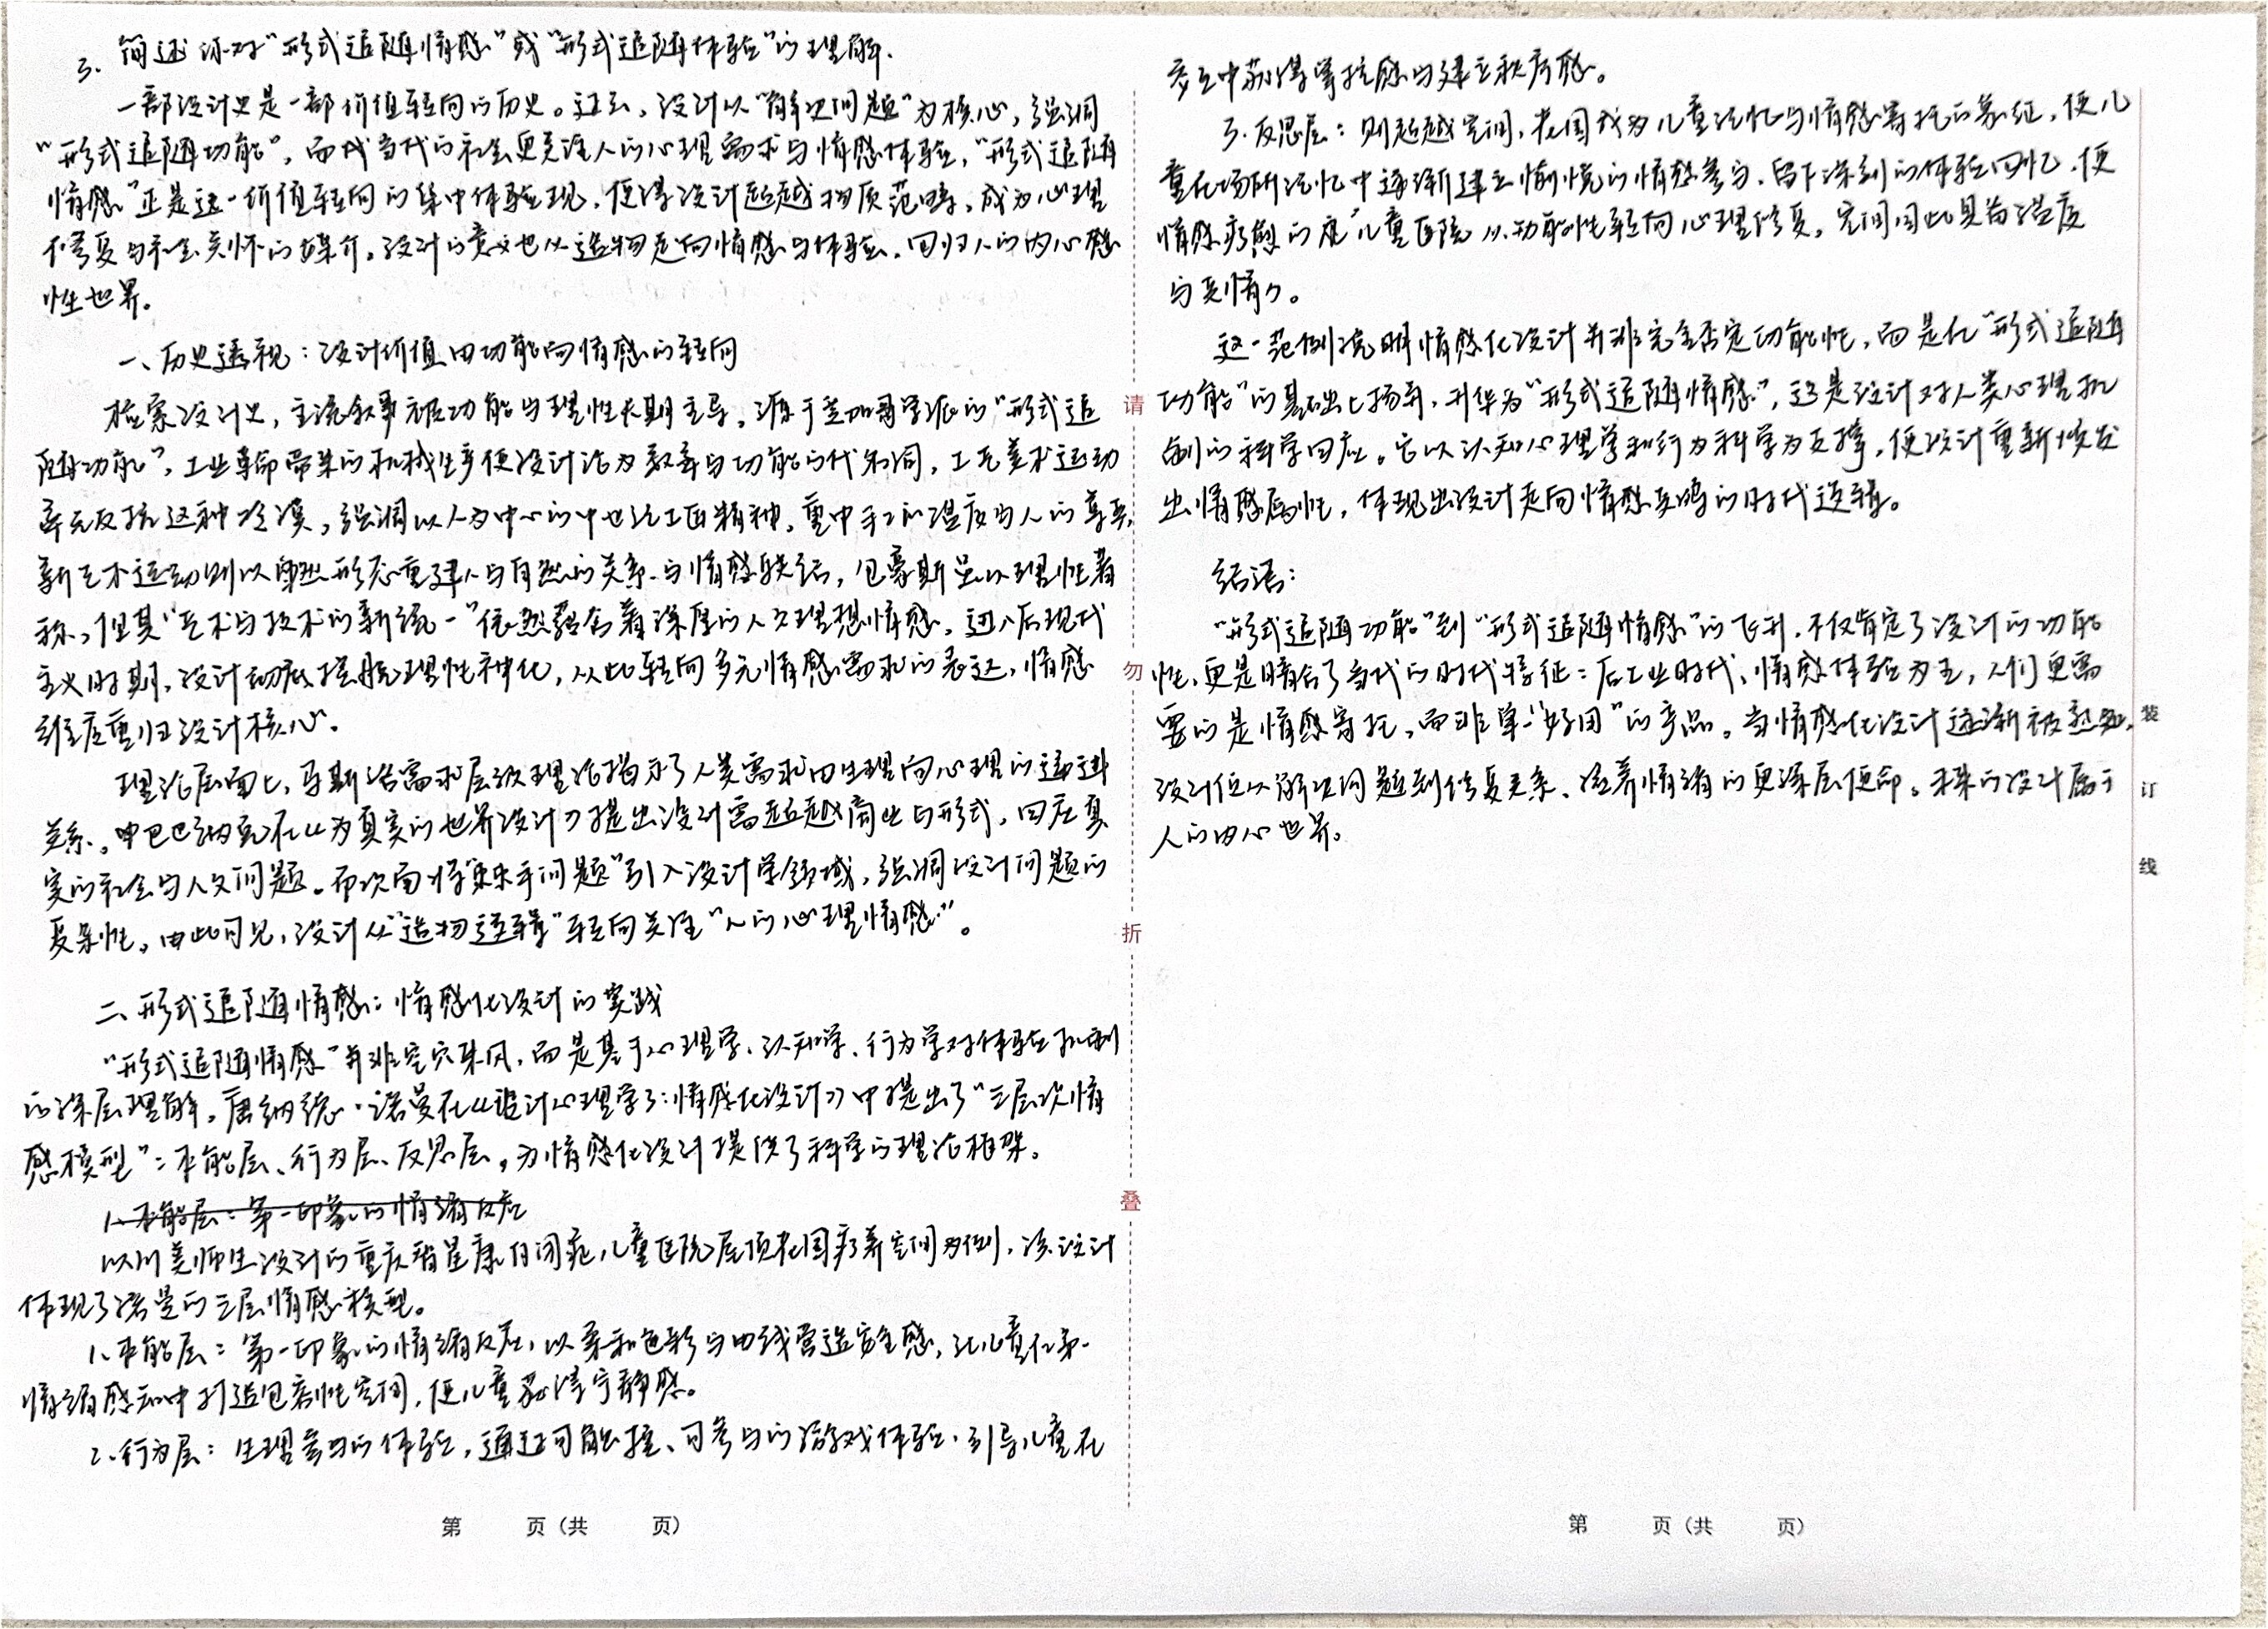 3. 简述你对“形式追随情感”或“形式追随体验”的理解.
一部设计史是一部价值转向的历史。过去，设计以“解决问题”为核心，强调
“形式追随功能”，而代当代的社会更关注人的心理需求与情感体验，“形式追随
情感”正是这一价值转向的集中体验现，使得设计超越物质范畴，成为心理
修复与社会关怀的媒介。设计的意义也从造物走向情感与体验，回归人的内心感
性世界。
一、历史透视：设计价值由功能向情感的转向
检索设计史，主流叙事被功能与理性长期主导。源于芝加哥学派的“形式追
随功能”，工业革命带来的机械生产使设计沦为效率与功能的代名词，工艺美术运动
率先反抗这种冷漠，强调以人为中心的中世纪工匠精神，重申手工的温度与人的尊严，
新艺术运动则以自然形态重建人与自然的关系与情感联结，包豪斯虽以理性著
称，但其“艺术与技术的新统一”依然蕴含着深厚的人文理想情感。进入后现代
主义时期，设计彻底摆脱理性神化，从此转向多元情感需求的表达，情感
维度重归设计核心。
理论层面上，马斯洛需求层级理论揭示了人类需求由生理向心理的递进
关系。巴巴纳克在《为真实的世界设计》提出设计需超越商业与形式，回应真
实的社会与人文问题。布坎南将“棘手问题”引入设计学领域，强调设计问题的
复杂性。由此可见，设计从“造物逻辑”转向关注“人的心理情感”。
二、形式追随情感：情感化设计的实践
“形式追随情感”并非空穴来风，而是基于心理学、认知学、行为学对体验机制
的深层理解。唐纳德·诺曼在《设计心理学3：情感化设计》中提出了“三层次情
感模型”：本能层、行为层、反思层，为情感化设计提供了科学的理论框架。
1、本能层：第一印象的情绪反应
以川美师生设计的重庆 星康自闭症儿童医院屋顶花园疗养空间为例，该设计
体现了诺曼的三层情感模型。
1、本能层：第一印象的情绪反应，以柔和色彩与曲线营造安全感，让儿童在第一
情绪感知中打造包裹性空间，使儿童获得宁静感。
2、行为层：生理参与的体验，通过可触摸、可参与的游戏体验，引导儿童在
交互中获得掌控感与建立秩序感。
3、反思层：则超越空间，花园成为儿童记忆与情感寄托的象征，使儿
童在场所记忆中逐渐建立愉悦的情感参与，留下深刻的体验回忆，使
情感疗愈的儿童医院从功能性转向心理修复，空间因此具备温度
与共情力。
这一范例说明情感化设计并非完全否定功能性，而是在“形式追随
功能”的基础上扬弃，升华为“形式追随情感”，这是设计对人类心理机
制的科学回应。它以认知心理学和行为科学为支撑，使设计重新焕发
出情感属性，体现出设计走向情感共鸣的时代逻辑。
结语：
“形式追随功能”到“形式追随情感”的飞升，不仅肯定了设计的功能
性，更是暗合了当代的时代特征：后工业时代、情感体验为王，人们更需
要的是情感寄托，而非单一“好用”的产品。当情感化设计逐渐被熟知，
设计便从解决问题到修复关系、滋养情绪的更深层使命。未来的设计属于
人的内心世界。
请
勿
折
叠
装
订
线
第 页（共 页）
第 页（共 页）